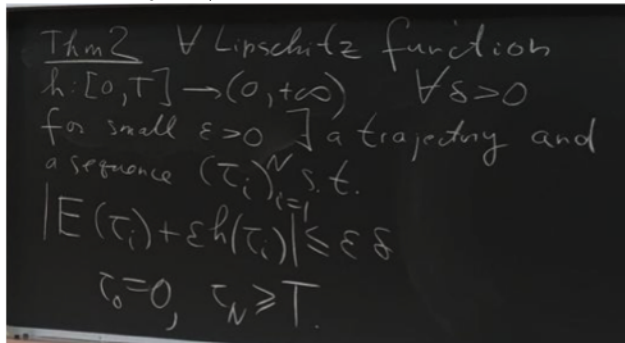 Thm2 ∀ Lipschitz function
h: [0,T] → (0,+∞) ∀δ>0
for small ε>0 ∃ a trajectory and
a sequence (τᵢ)ᵢ₌₁ᴺ s.t.
|E(τᵢ)+εh(τᵢ)|≤εδ
τ₀=0, τ_N⩾T.